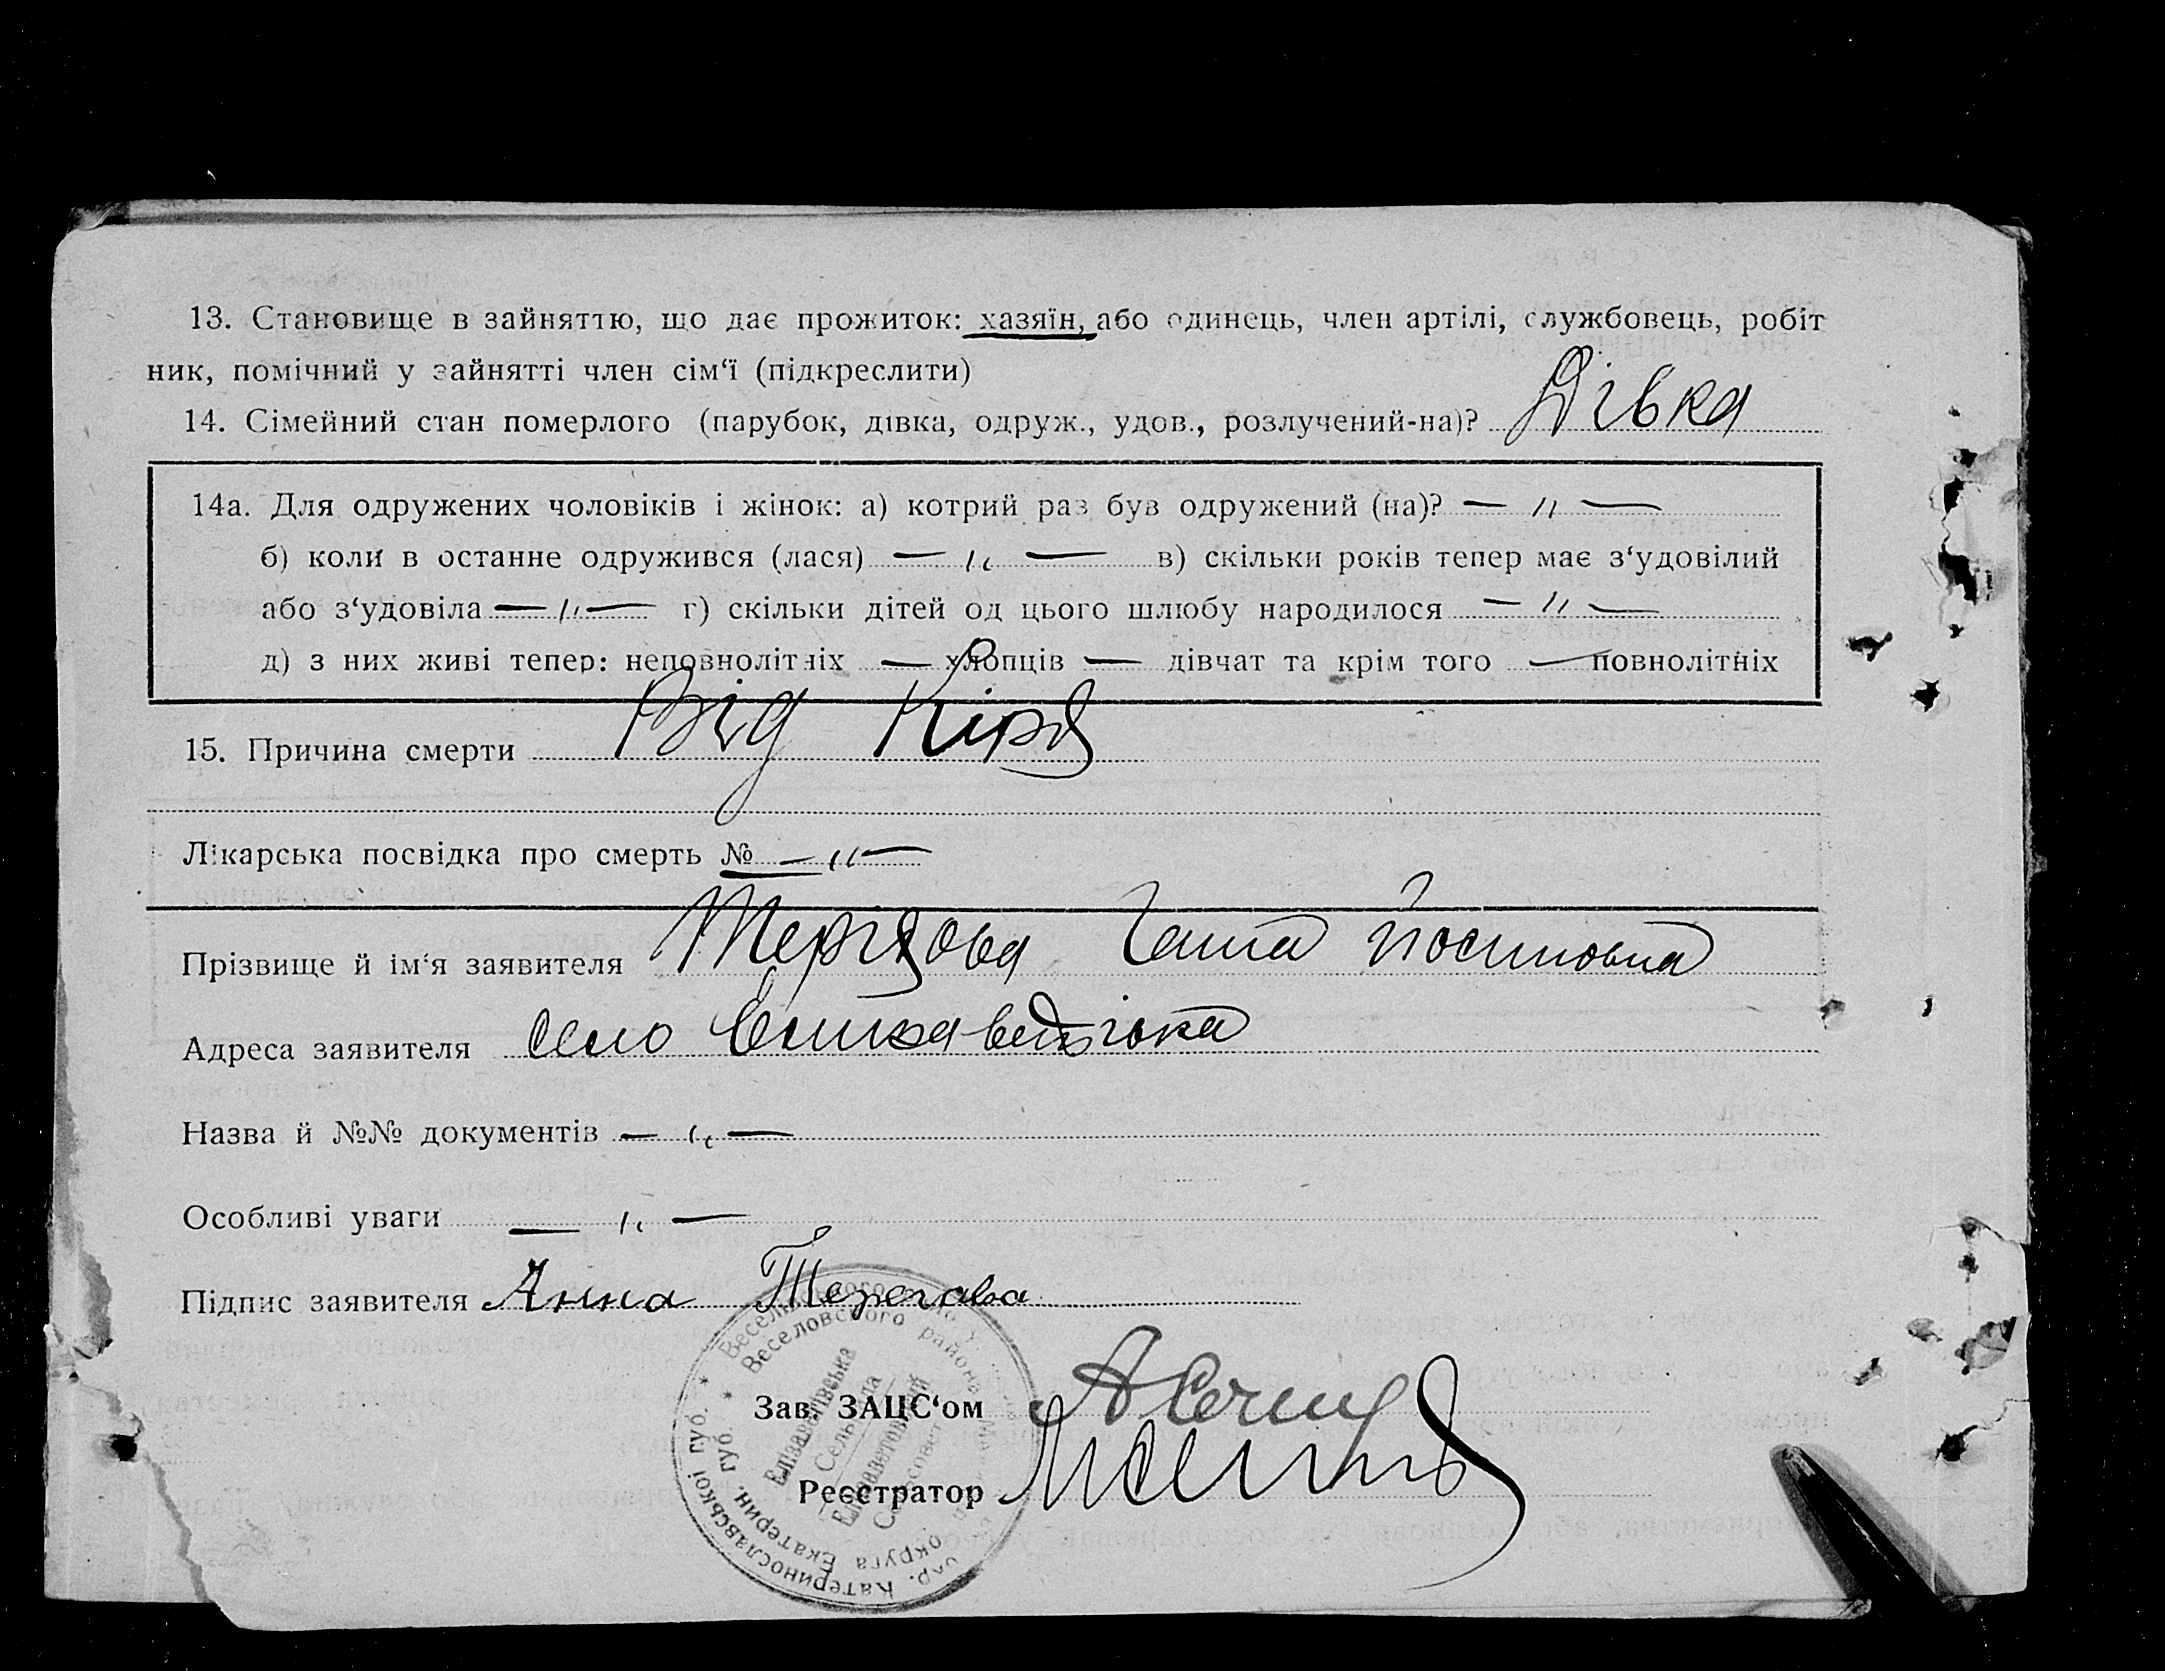 13. Становище в зайняттю, що дає прожиток: хазяїн, або одинець, член артілі, службовець, робіт
ник, помічний у зайнятті член сім‘ї (підкреслити)
14. Сімейний стан померлого (парубок, дівка, одруж., удов., розлучений-на)? Дівка
14а. Для одружених чоловіків і жінок: а) котрий раз був одружений (на)? — „ —
б) коли в останне одружився (лася) — „ — в) скільки років тепер має з‘удовілий
або з‘удовіла — „ — г) скільки дітей од цього шлюбу народилося — „ —
д) з них живі тепер: неповнолітніх — хлопців — дівчат та крім того — повнолітніх
15. Причина смерти Від Кіру
Лікарська посвідка про смерть № — „ —
Прізвище й ім‘я заявителя Ганна Йосиповна
Адреса заявителя село
Назва й №№ документів — „ —
Особливі уваги — „ —
Підпис заявителя Анна Терегова
Зав. ЗАЦС‘ом
Реєстратор
Веселовского района
Екатерин. губ.
округа
окр. Катеринославської губ.
Елізаветівська
Сельрада
Елизаветовский
Сельсовет